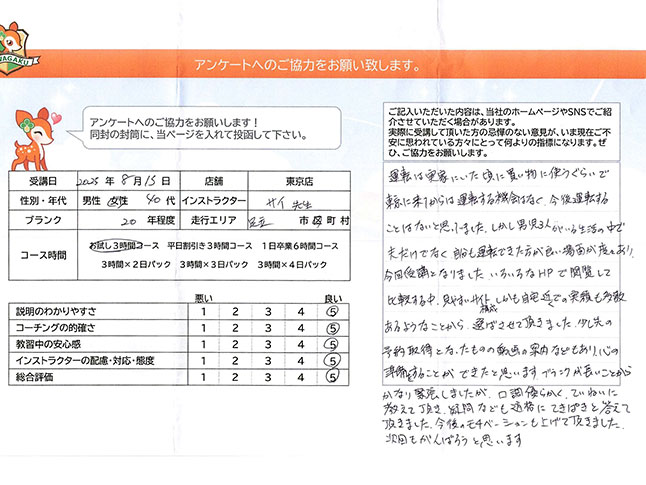 NAGAKU
アンケートへのご協力をお願い致します。
アンケートへのご協力をお願いします！
同封の封筒に、当ページを入れて投函して下さい。
受講日 2025年 8月 15日 店舗 東京店
性別・年代 男性 女性 40代 インストラクター サイ 先生
ブランク 20 年程度 走行エリア 足立 市区町村
コース時間 お試し3時間コース 平日割引き3時間コース 1日卒業6時間コース
3時間×2日パック 3時間×3日パック 3時間×4日パック
悪い 良い
説明のわかりやすさ 1 2 3 4 5
コーチングの的確さ 1 2 3 4 5
教習中の安心感 1 2 3 4 5
インストラクターの配慮・対応・態度 1 2 3 4 5
総合評価 1 2 3 4 5
ご記入いただいた内容は、当社のホームページやSNSでご紹
介させていただく場合があります。
実際に受講して頂いた方の忌憚のない意見が、いま現在ご不
安に思われている方々にとって何よりの指標になります。ぜ
ひ、ご協力をお願いします。
運転は実家にいた頃に買い物に使うぐらいで
東京に来てからは運転する機会はなく、今後運転する
ことはないと思ってました。しかし男児3人がいる生活の中で
夫だけでなく自分も運転できた方が良い場面が度々あり、
今回受講となりました。いろいろなHPで閲覧して
比較する中、見やすいサイト構成、しかも自宅近くでの実績も多数
あるようなことから、選ばせて頂きました。少し先の
予約取得となったものの動画の案内などもあり、心の
準備をすることができたと思います。ブランクが長いことから
かなり緊張しましたが、口調優らかく、ていねいに
教えて頂き、疑問なども適格にてきぱきと答えて
頂きました。今後のモチベーションも上げて頂きました。
次回もがんばろうと思います